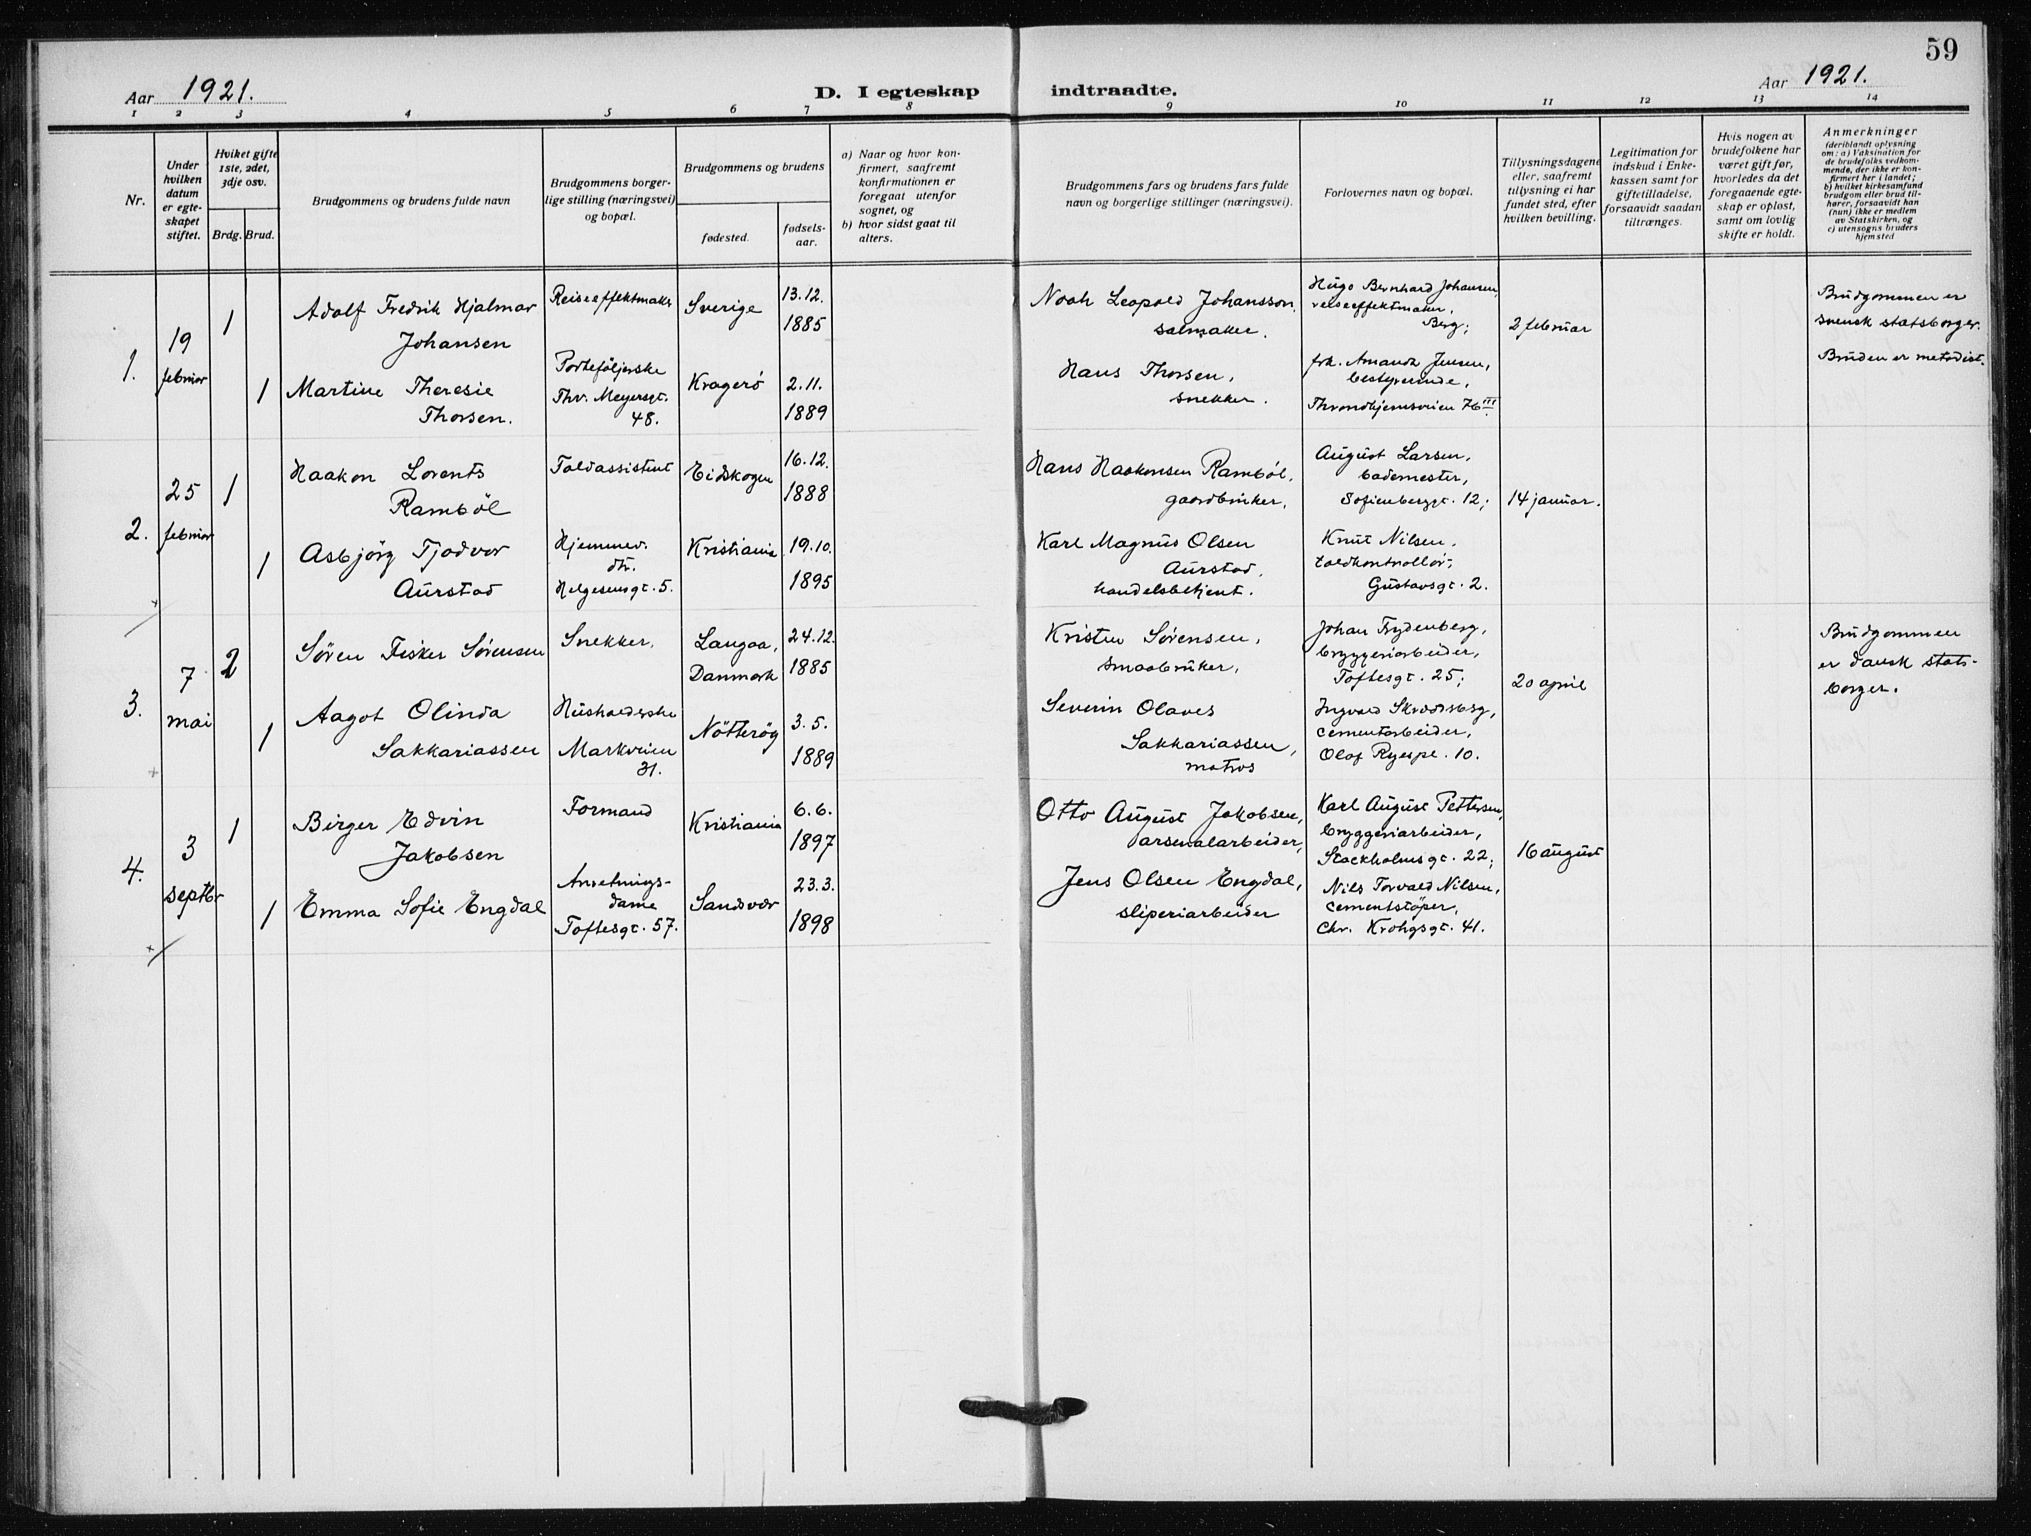 59
Aar 1921.
D. I egteskap indtraadte.
Aar 1921.
1 2 3 4 5 6 7 8 9 10 11 12 13 14
Nr.
Under
hvilken
datum
er egte-
skapet
stiftet.
Hviket gifte
1ste, 2det,
3dje osv.
Brdg. Brud.
Brudgommens og brudens fulde navn
Brudgommens borger-
lige stilling (næringsvei)
og bopæl.
Brudgommens og brudens
fødested.
fødsels-
aar.
a) Naar og hvor kon-
firmert, saafremt
konfirmationen er
foregaat utenfor
sognet, og
b) hvor sidst gaat til
alters.
Brudgommens fars og brudens fars fulde
navn og borgerlige stillinger (næringsvei).
Forlovernes navn og bopæl.
Tillysningsdagene
eller, saafremt
tillysning ei har
fundet sted, efter
hvilken bevilling.
Legitimation for
indskud i Enke-
kassen samt for
giftetilladelse,
forsaavidt saadan
tiltrænges.
Hvis nogen av
brudefolkene har
været gift før,
hvorledes da det
foregaaende egte-
skap er opløst,
samt om lovlig
skifte er holdt.
Anmerkninger
(deriblandt oplysning
om: a) Vaksination for
de brudefolks vedkom-
mende, der ikke er kon-
firmert her i landet;
b) hvilket kirkesamfund
brudgom eller brud til-
hører, forsaavidt han
(hun) ikke er medlem
av Statskirken, og
c) utensogns bruders
hjemsted
1.
19
februar
1
Adolf Fredrik Hjalmar
Johansen
Reiseeffektmaker
Sverige
13.12.
1885
Noah Leopold Johansson,
salmaker.
Hugo Bernhard Johansen,
reiseeffektmaker,
Berg;
2 februar
Brudgommen er
svensk statsborger.
Bruden er metodist.
1
Martine Theresie
Thorsen.
Porteføljerske
Thv. Meyersgt.
48.
Kragerö
2.11.
1889
Hans Thorsen,
snekker.
frk. Amanda Jensen,
bestyrerinde,
Throndhjemsveien 76 III.
2.
25
februar
1
Haakon Lorents
Ramböl
Toldassistent
Eidskogen
16.12.
1888
Hans Haakonsen Ramböl,
gaardbruker.
August Larsen,
bademester,
Sofienberggt. 12;
14 januar.
1
Asbjörg Tjodvor
Aurstad
Hjemmev.
dtr.
Helgesensgt. 5.
Kristiania
19.10.
1895
Karl Magnus Olsen
Aurstad,
handelsbetjent.
Knut Nilsen,
toldkontrollör,
Gustavsgt. 2.
3.
7
mai
2
Søren Fisker Sørensen
Snekker,
Langaa,
Danmark
24.12.
1885
Kristen Sørensen,
smaabruker,
Johan Frydenberg,
bryggeriarbeider,
Toftesgt. 25;
20 april
Brudgommen
er dansk stats-
borger.
1
Aagot Olinda
Sakkariassen
Husholderske
Markveien
31.
Nötterøy
3.5.
1889
Severin Olaves
Sakkariassen,
matros
Ingvald Skrædderberg,
cementarbeider,
Olaf Ryespl. 10.
4.
3
septbr
1
Birger Edvin
Jakobsen
Formand
Kristiania
6.6.
1897
Otto August Jakobsen,
arsenalarbeider,
Karl August Pettersen,
bryggeriarbeider,
Stockholmsgt. 22;
16 august
1
Emma Sofie Engdal
Anretnings-
dame
Toftesgt. 57.
Sandsvær
23.3.
1898
Jens Olsen Engdal,
sliperiarbeider
Nils Torvald Nilsen,
cementstöper,
Chr. Krohgsgt. 41.